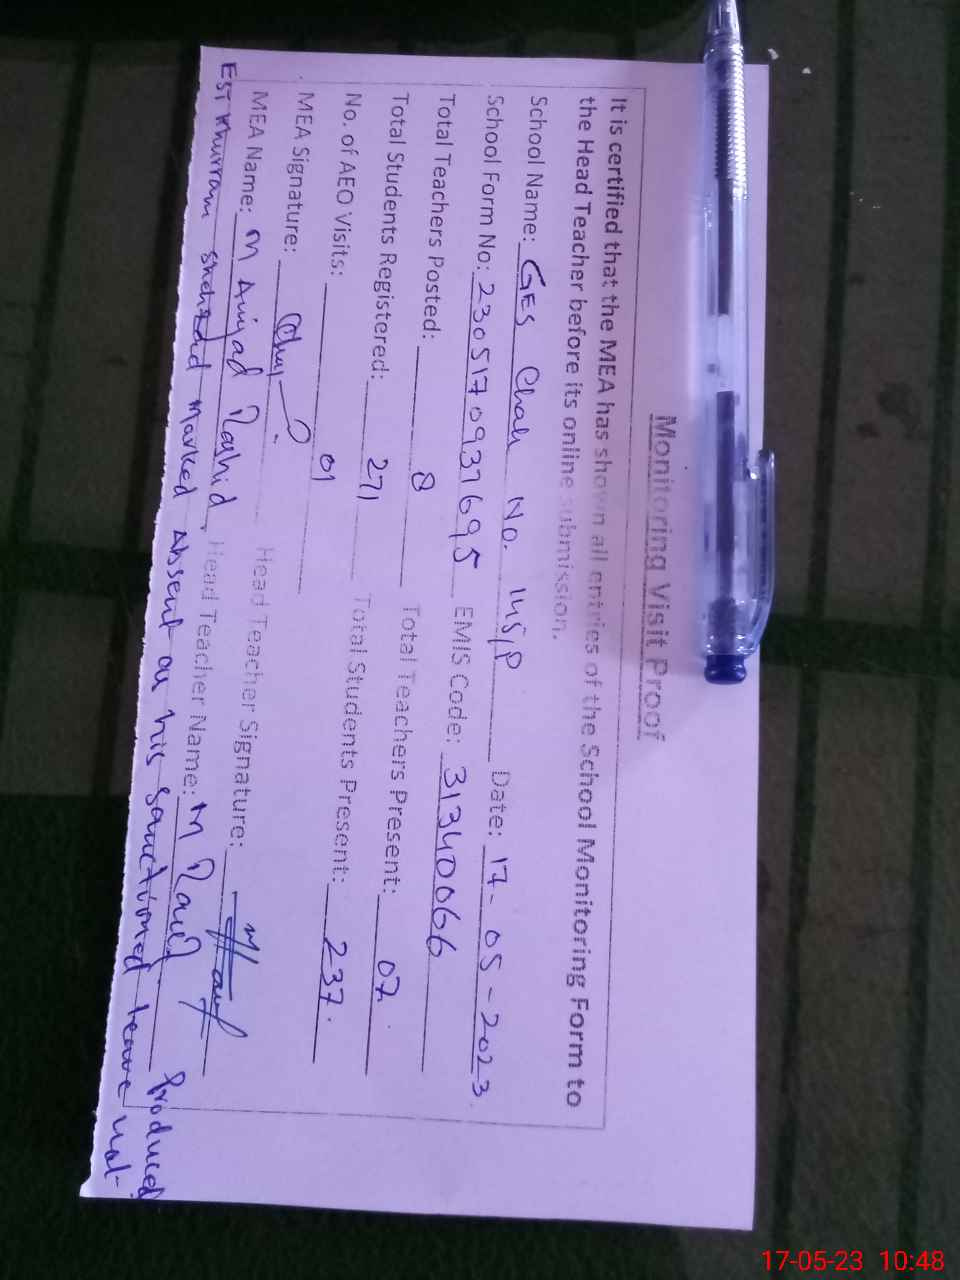 Monitoring Visit Proof
It is certified that the MEA has shown all entries of the School Monitoring Form to
the Head Teacher before its online submission.
School Name: GES Chak No. 145/P Date: 17-05-2023
School Form No: 23051709376 95 EMIS Code: 31340066
Total Teachers Posted: 8 Total Teachers Present: 07
Total Students Registered: 271 Total Students Present: 237.
No. of AEO Visits: 01
MEA Signature: Head Teacher Signature:
MEA Name: M Amjad Rashid. Head Teacher Name: M Rauf
EST Khurram Shehzad Marked Absent as his sanctioned leave not produced
17-05-23 10:48